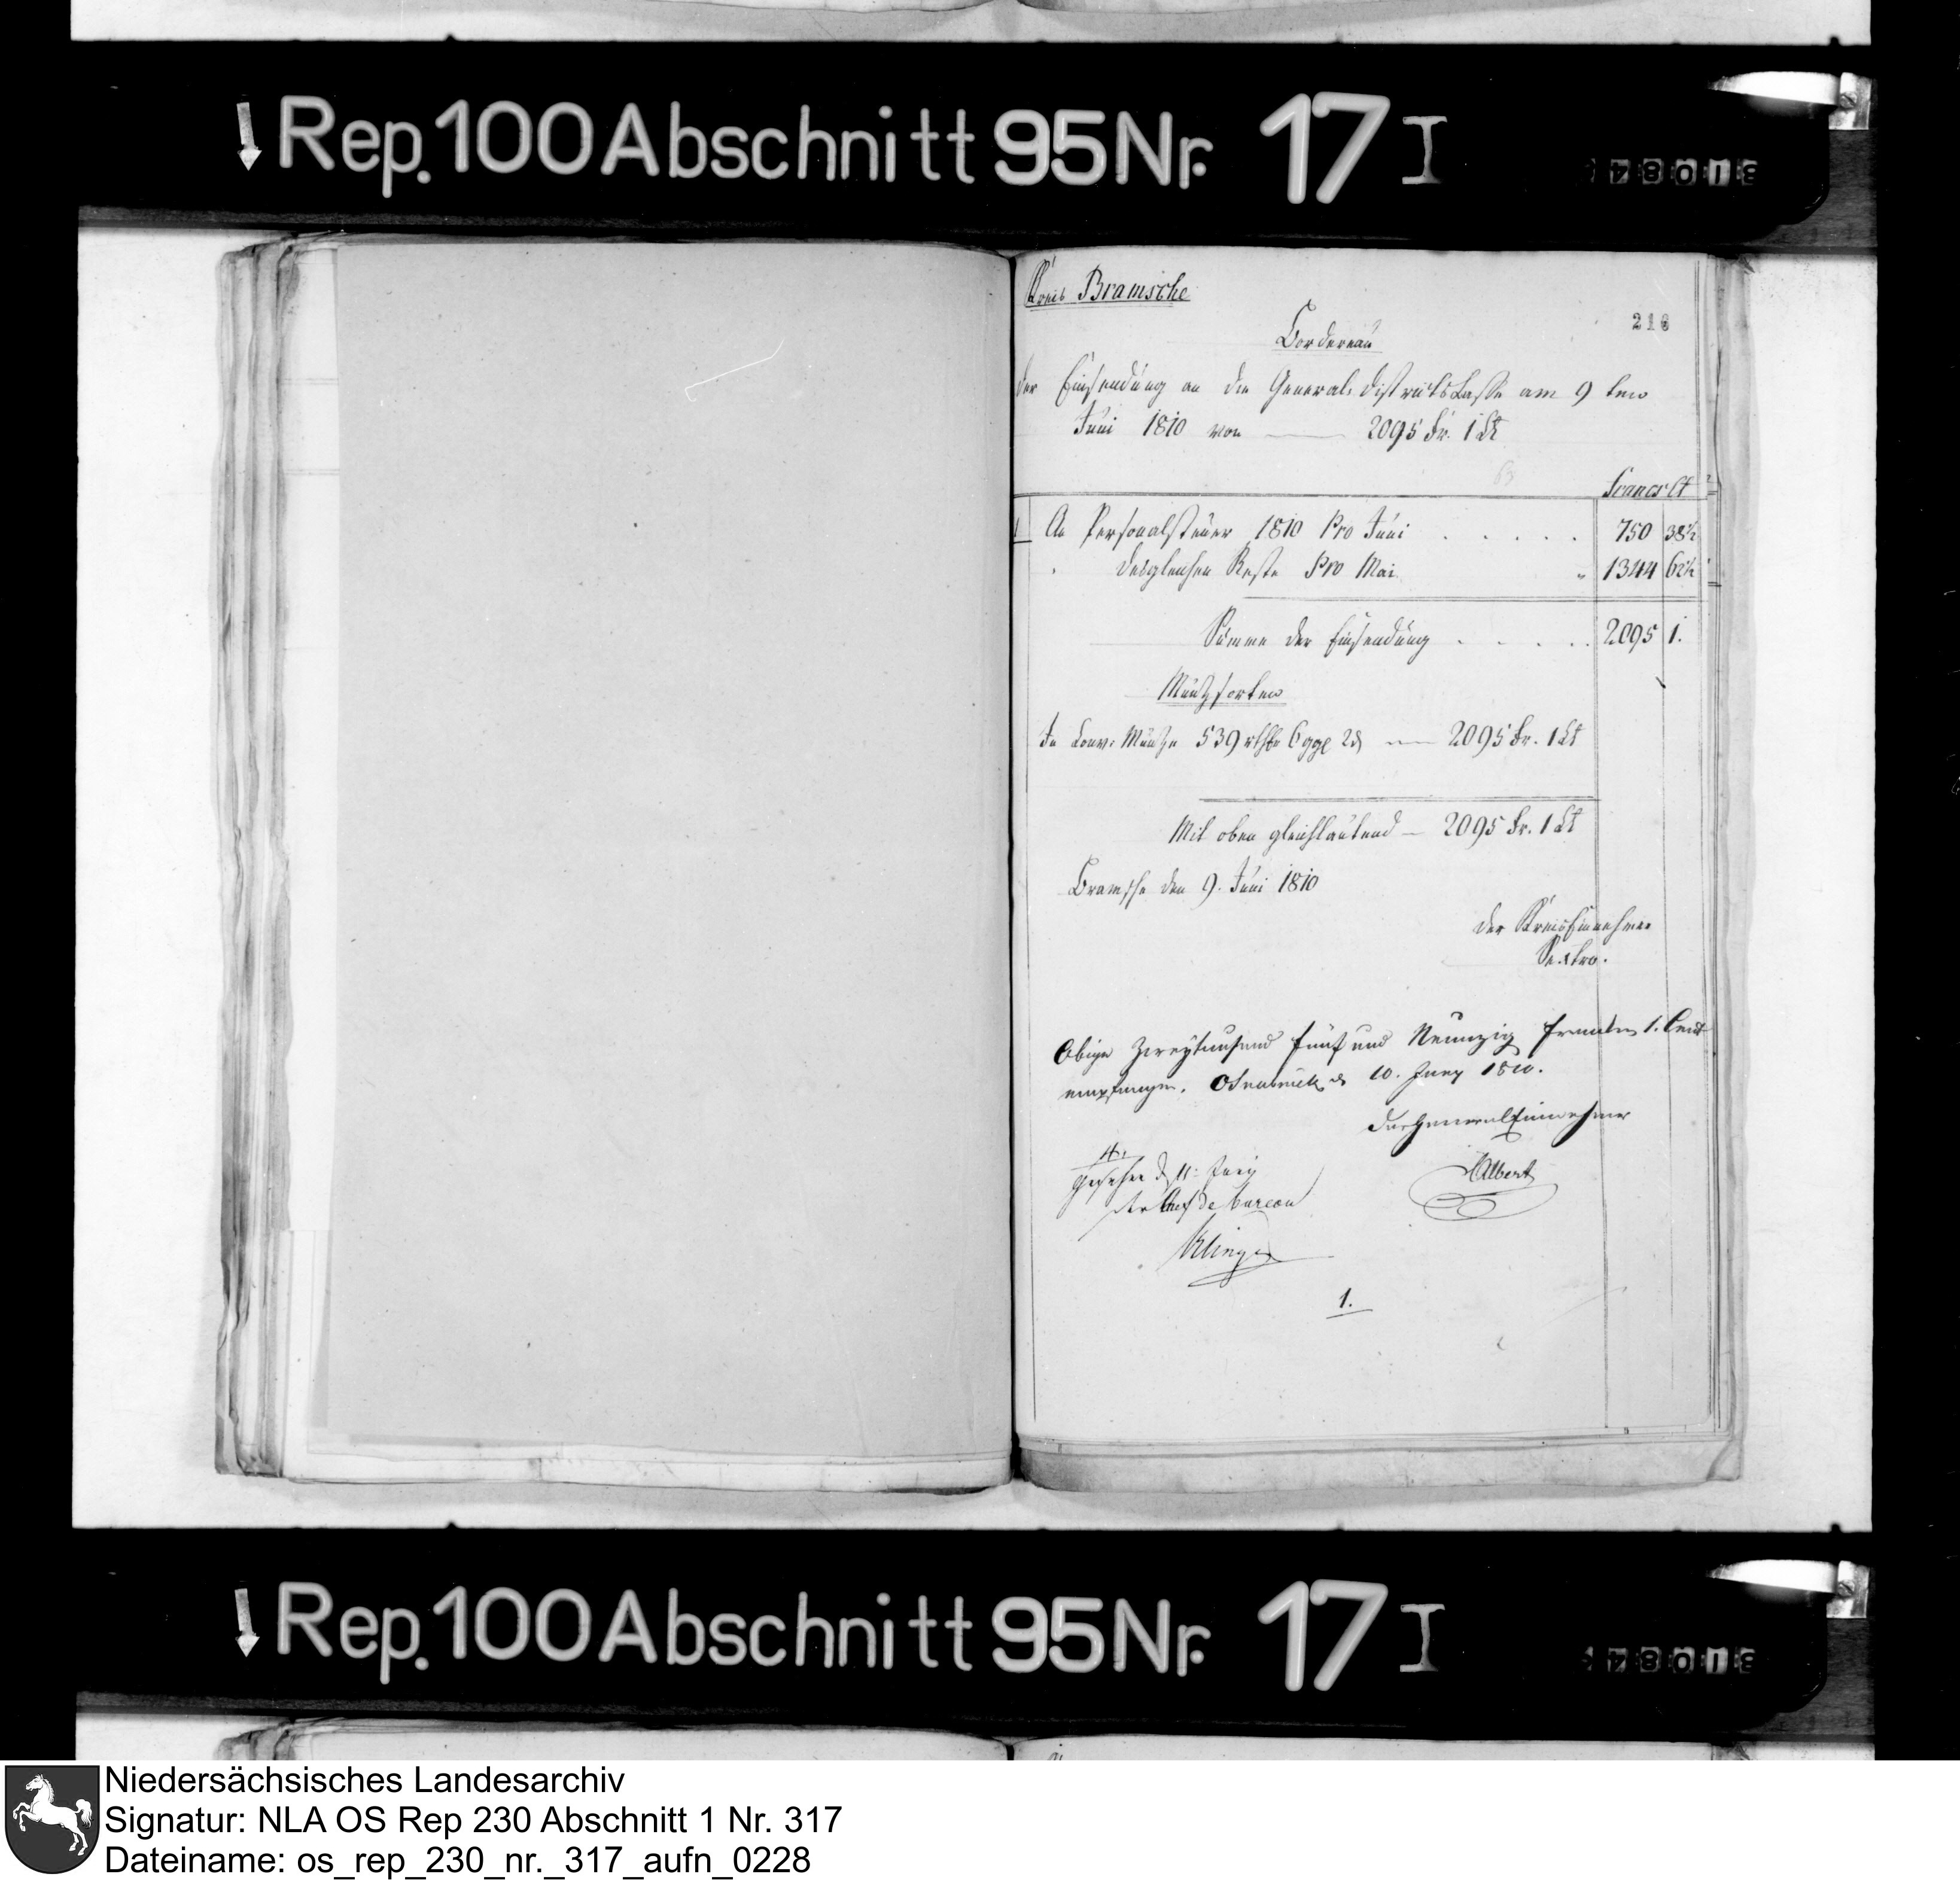 Rep. 100 Abschnitt 95 Nr. 17 I
Kreis Bramsche
216
Bordereau
der Einsendung an die General-Districtscasse am 9 ten
Juni 1810 von — 2095 Fr. 1 Ct
Francs Ct
1 An Personalsteuer 1810 Pro Juni . . . . . 750 38½
desgleichen Reste Pro Mai " 1344 62½
Summe der Einsendung . . . . . 2095 1.
Müntzsorten
In Conv: Müntze 539 rthlr 6 ggl 2 d — 2095 Fr. 1 Ct
Mit oben gleichlautend — 2095 Fr. 1 Ct
Bramsche den 9. Juni 1810
Der KreisEinnehmer
Sextro.
Obige Zweytausend fünf und Neunzig Franken 1. Cent
empfangen. Osnabrück d 10. Juny 1810.
Der General Einnehmer
Gesehen d 11: Juny
Albert
der Chef de bureau
Klinge
1.
Rep. 100 Abschnitt 95 Nr. 17 I
Niedersächsisches Landesarchiv
Signatur: NLA OS Rep 230 Abschnitt 1 Nr. 317
Dateiname: os_rep_230_nr._317_aufn_0228